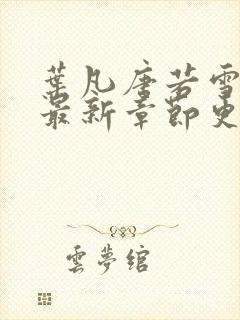 葉凡唐若雪
最新章節更
雲夢綰